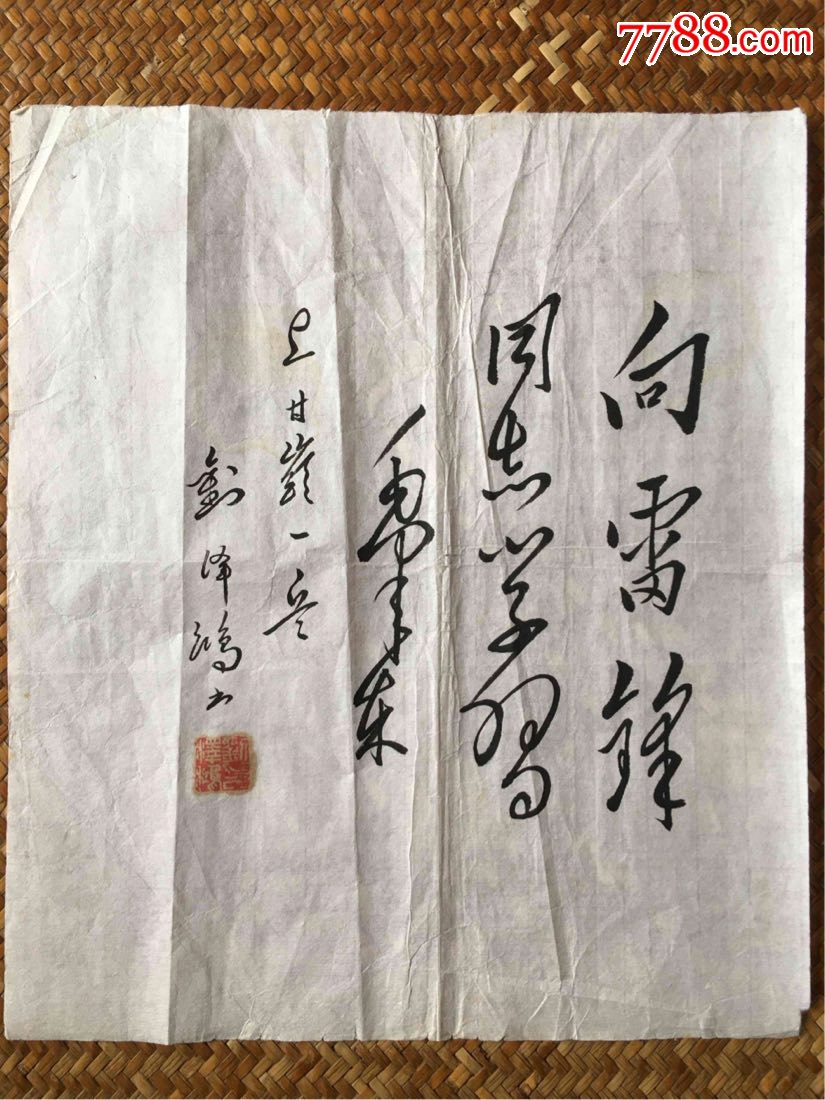 7788.com
向雷锋
同志学习
毛泽东
上甘岭一兵
劉泽鸿书